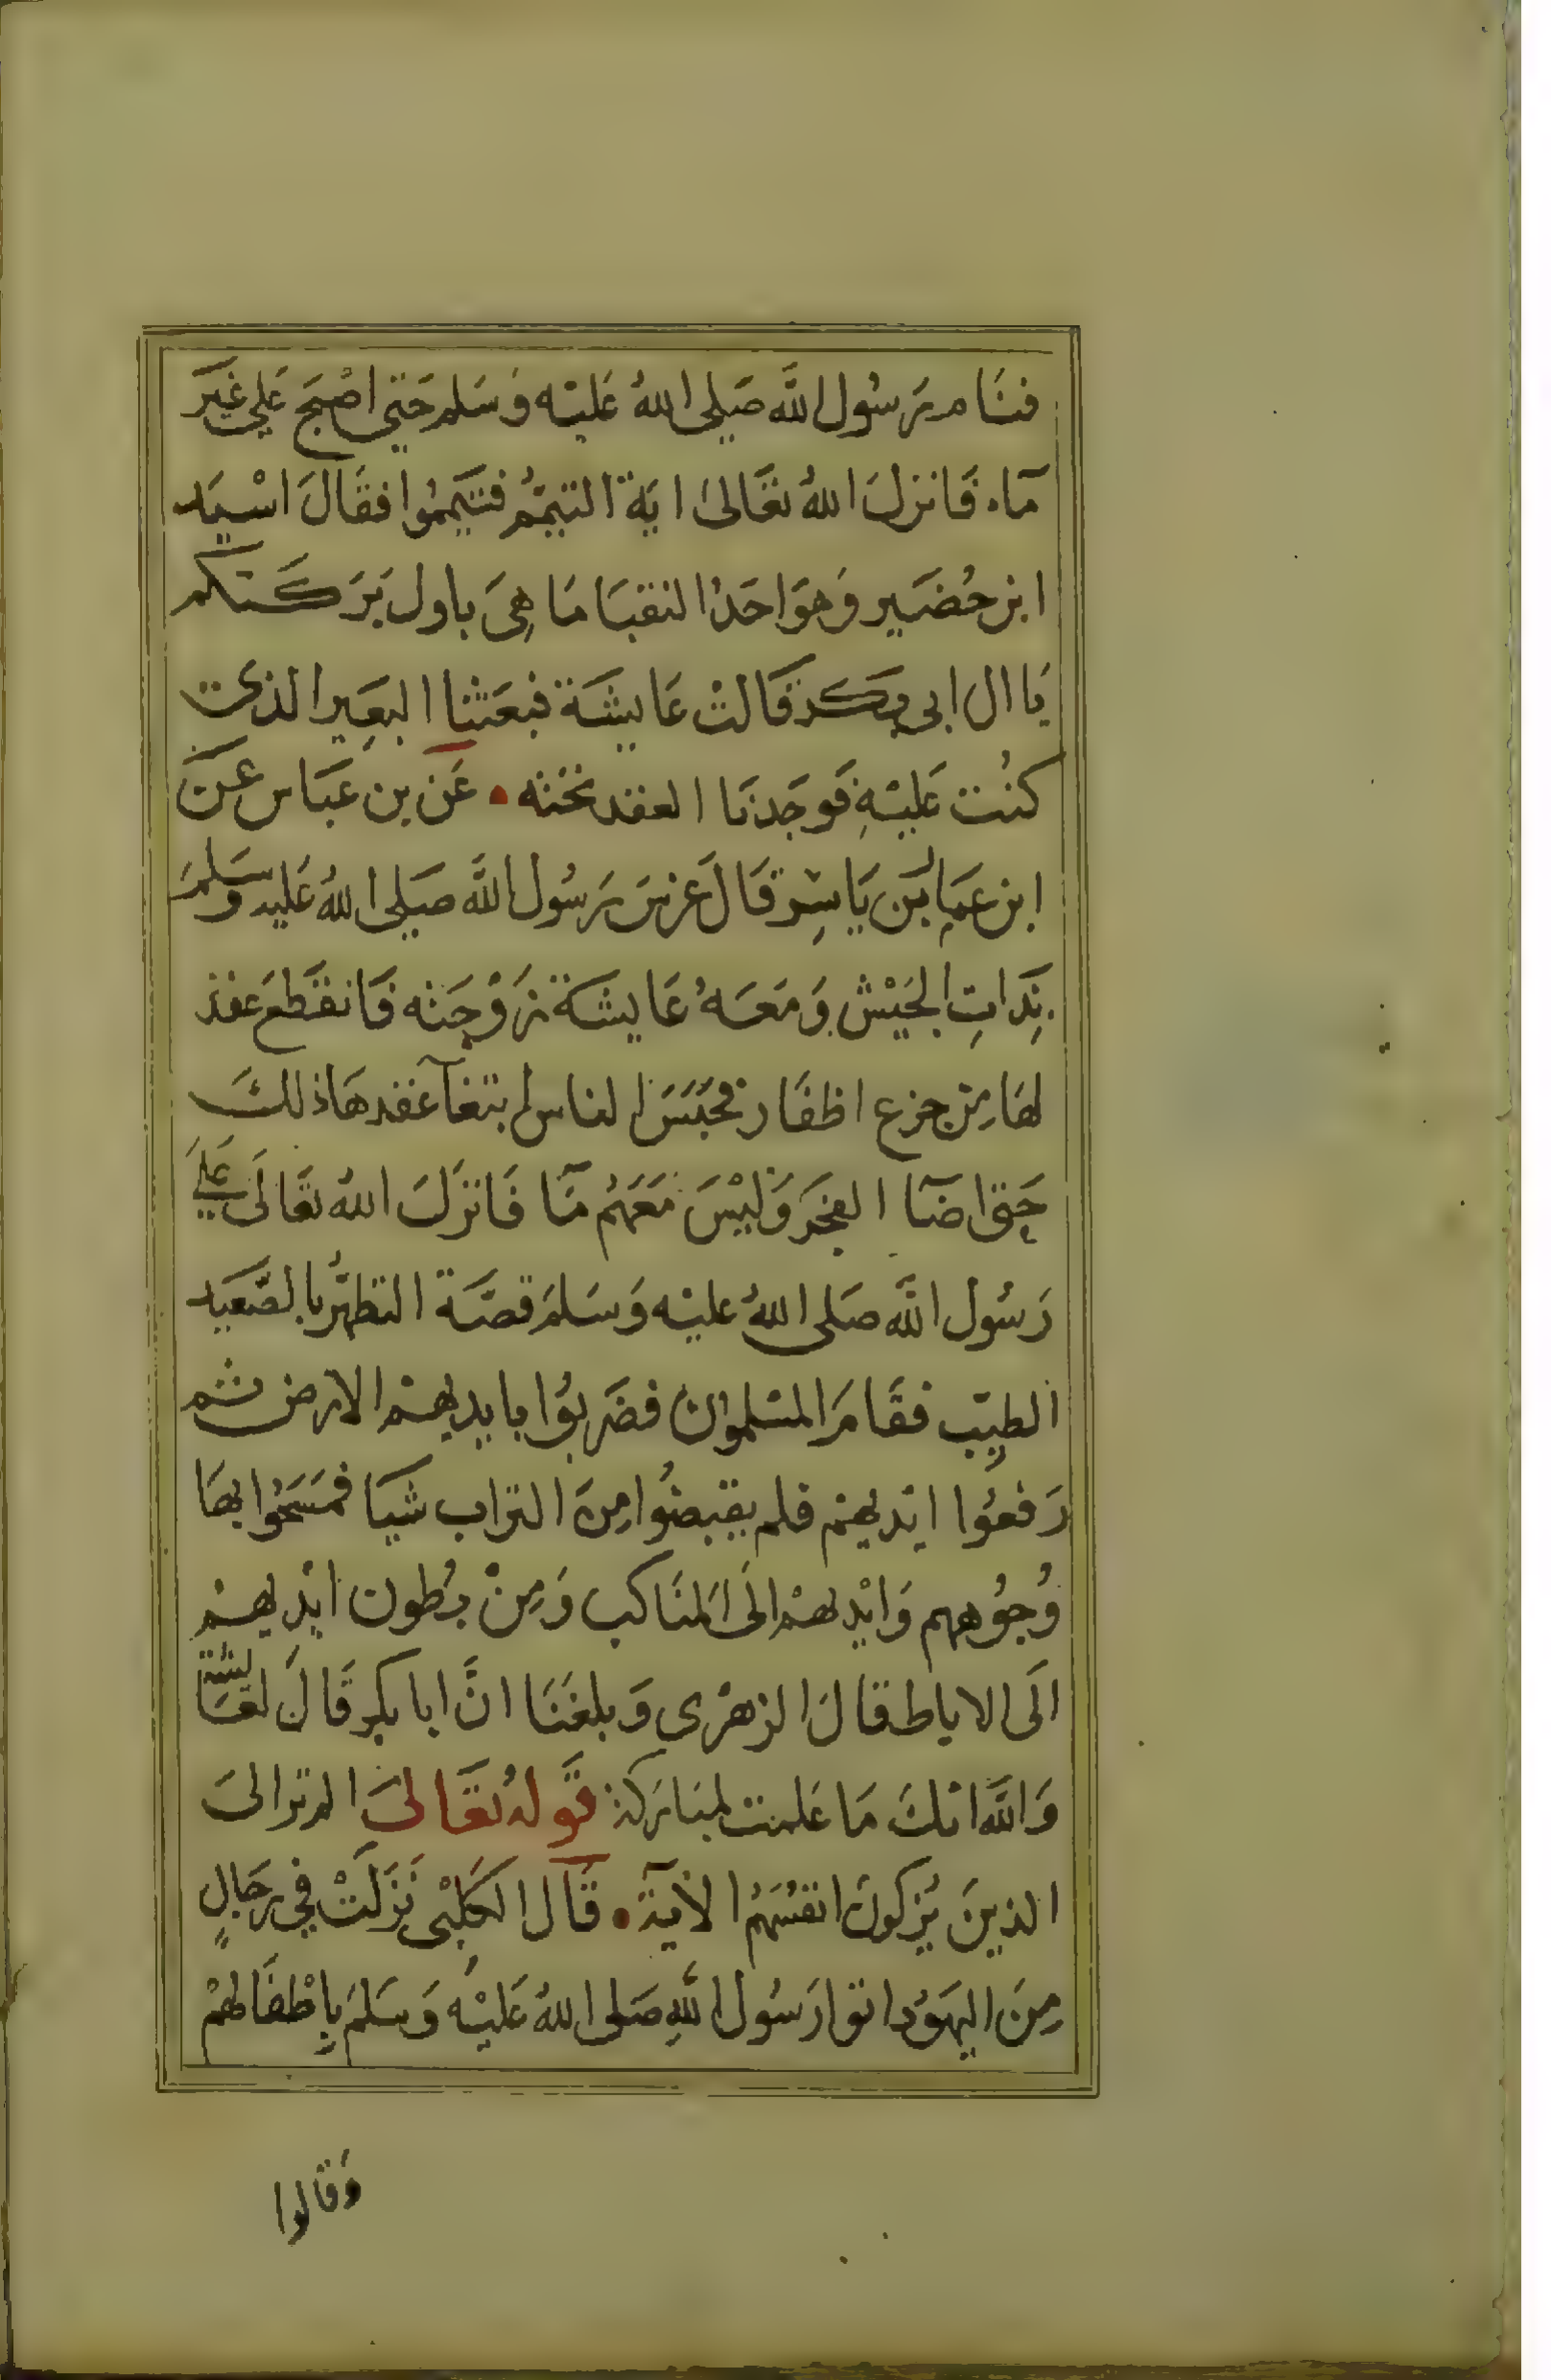 فنَام رَسُول اللَّه صَلى اللهُ عَليْه وَسَلم حَتى اصْبَح عَلى غَير
مَآء فَانزلَ اللهُ تعَالىَ ايَة التيمّم فتيَمّمُوا فقَالَ اسْيَد
ابن حُضَير وَهوَ احَدُ النقبَا مَا هِىَ باول بَرَكتكم
يَا ال ابى بكر قَالتْ عَايشَة فبعَثنا البَعِير الذى
كنُت عَليْهِ فَوجَدنَا العقد تحْته • عَن بن عَبَاس عَنْ
ابن عمار بَن يَاسِر قَالَ عرسَ رَسُول اللَّه صَلى اللهُ عَليه وسَلمَ
بِذَاتِ الجَيْش وَمَعَهُ عَايشَة زَوْجَته فَانقَطعَ عقد
لهَا مِن جزع اظفَار فحَبَسَ الناس ابتغآ عقدهَا ذلكَ
حَتى اضَآ الفجَر وَليْسَ مَعَهُم مَآ فَانزَلَ اللهُ تعَالَى عَلَى
رَسُول اللَّه صَلى اللهُ عليْه وَسَلمَ قصَّة التطهّر بالصّعَيد
الطيِّب فقَامَ المسْلموُن فضَربوُا بايديهمْ الارض ثم
رَفعُوا ايْديهمْ فلم يقبضُوا مِنَ التراب شيَا فمَسَحُوا بهَا
وُجوُههم وَايْديهمْ الَى المنَاكب وَمِنْ بُطون ايْديهمْ
الَى الاباط قالَ الزهْرى وَبلغَنَا انَّ ابا بكر قَالَ لعَايشة
وَاللَّه انكَ مَا عَلمت لمبَارَكة قَولهُ تعَالىَ الم تر الىَ
الذينَ يُزكونَ انفسَهُم الآيَة • قَالَ الكَلِبْى نَزَلَتْ فى رجَالٍ
مِنَ اليَهوُد اتوا رَسُول اللَّهِ صَلى اللهُ عَليْه وَسَلمَ بِاطْفَالهمْ
وَقالوا